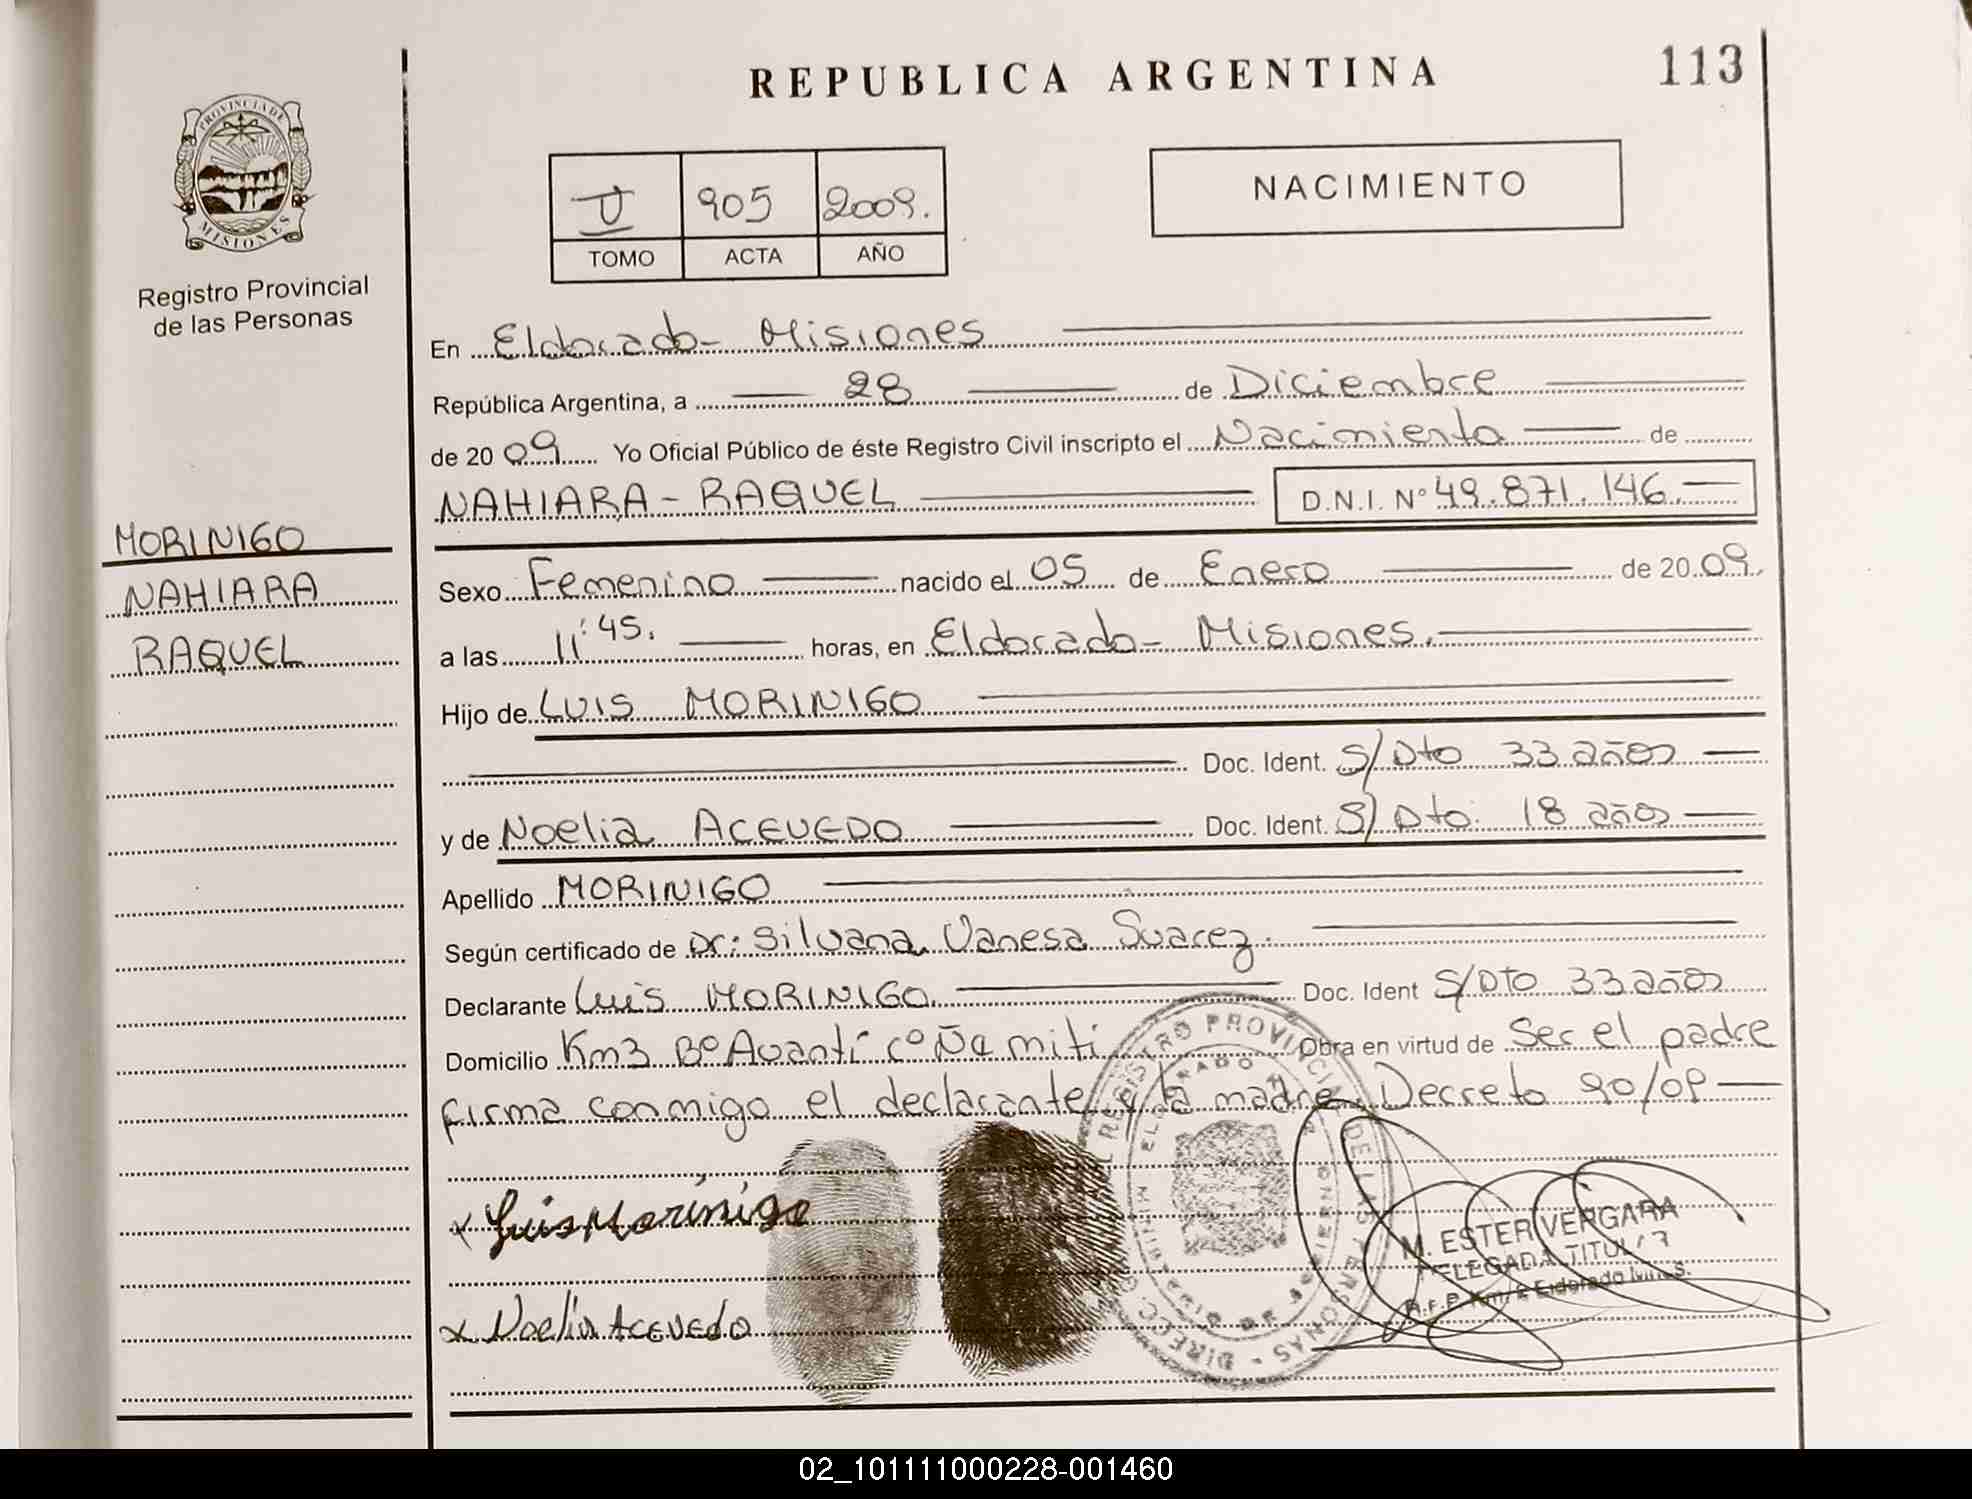 REPUBLICA ARGENTINA
113
PROVINCIA DE
MISIONES
Registro Provincial
de las Personas
905 2009.
TOMO ACTA AÑO
NACIMIENTO
En Eldorado - Misiones
República Argentina, a 28 de Diciembre
de 2009 Yo Oficial Público de éste Registro Civil inscripto el Nacimiento de
NAHIARA - RAQUEL D.N.I. Nº 49.871.146.
MORINIGO
NAHIARA
RAQUEL
Sexo Femenino nacido el 05 de Enero de 2009.
a las 11:45. horas, en Eldorado - Misiones.
Hijo de LUIS MORINIGO
Doc. Ident. S/Dto 33 años
y de Noelia ACEVEDO Doc. Ident. S/Dto. 18 años
Apellido MORINIGO
Según certificado de Dr: Silvana Vanesa Suarez.
Declarante Luis MORINIGO. Doc. Ident S/DTO 33 años
Domicilio Km3 Bº Avanti Obra en virtud de Ser el padre
firma conmigo el declarante y la madre. Decreto 90/09
Luis Morinigo
Noelia ACEVEDO
REGISTRO PROVINCIAL DE LAS PERSONAS
M. ESTER VERGARA
DELEGADA TITULAR
Eldorado
02_101111000228-001460